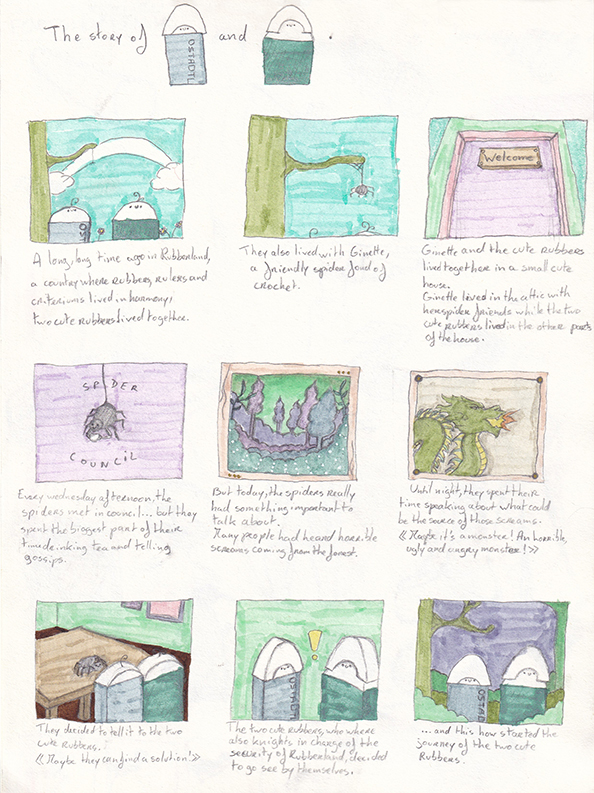 The story of OSTADTL and .
Welcome
A long, long time ago in Rubberland,
a country where rubbers, rulers and
criteriums lived in harmony,
two cute rubbers lived together.
They also lived with Ginette,
a friendly spider fond of
crochet.
Ginette and the cute rubbers
lived together in a small cute
house.
Ginette lived in the attic with
her spider friends while the two
cute rubbers lived in the other parts
of the house.
SPIDER
COUNCIL
Every wednesday afternoon, the
spiders met in council... but they
spent the biggest part of their
time drinking tea and telling
gossips.
But today, the spiders really
had something important to
talk about.
Many people had heard horrible
screams coming from the forest.
Until night, they spent their
time speaking about what could
be the source of those screams.
《 Maybe it's a monster! An horrible,
ugly and angry monster! 》
They decided to tell it to the two
cute rubbers.
《 Maybe they can find a solution! 》
OSTADTL
!
The two cute rubbers, who where
also knights in charge of the
security of Rubberland, decided
to go see by themselves.
OSTAD
... and this how started the
journey of the two cute
Rubbers.